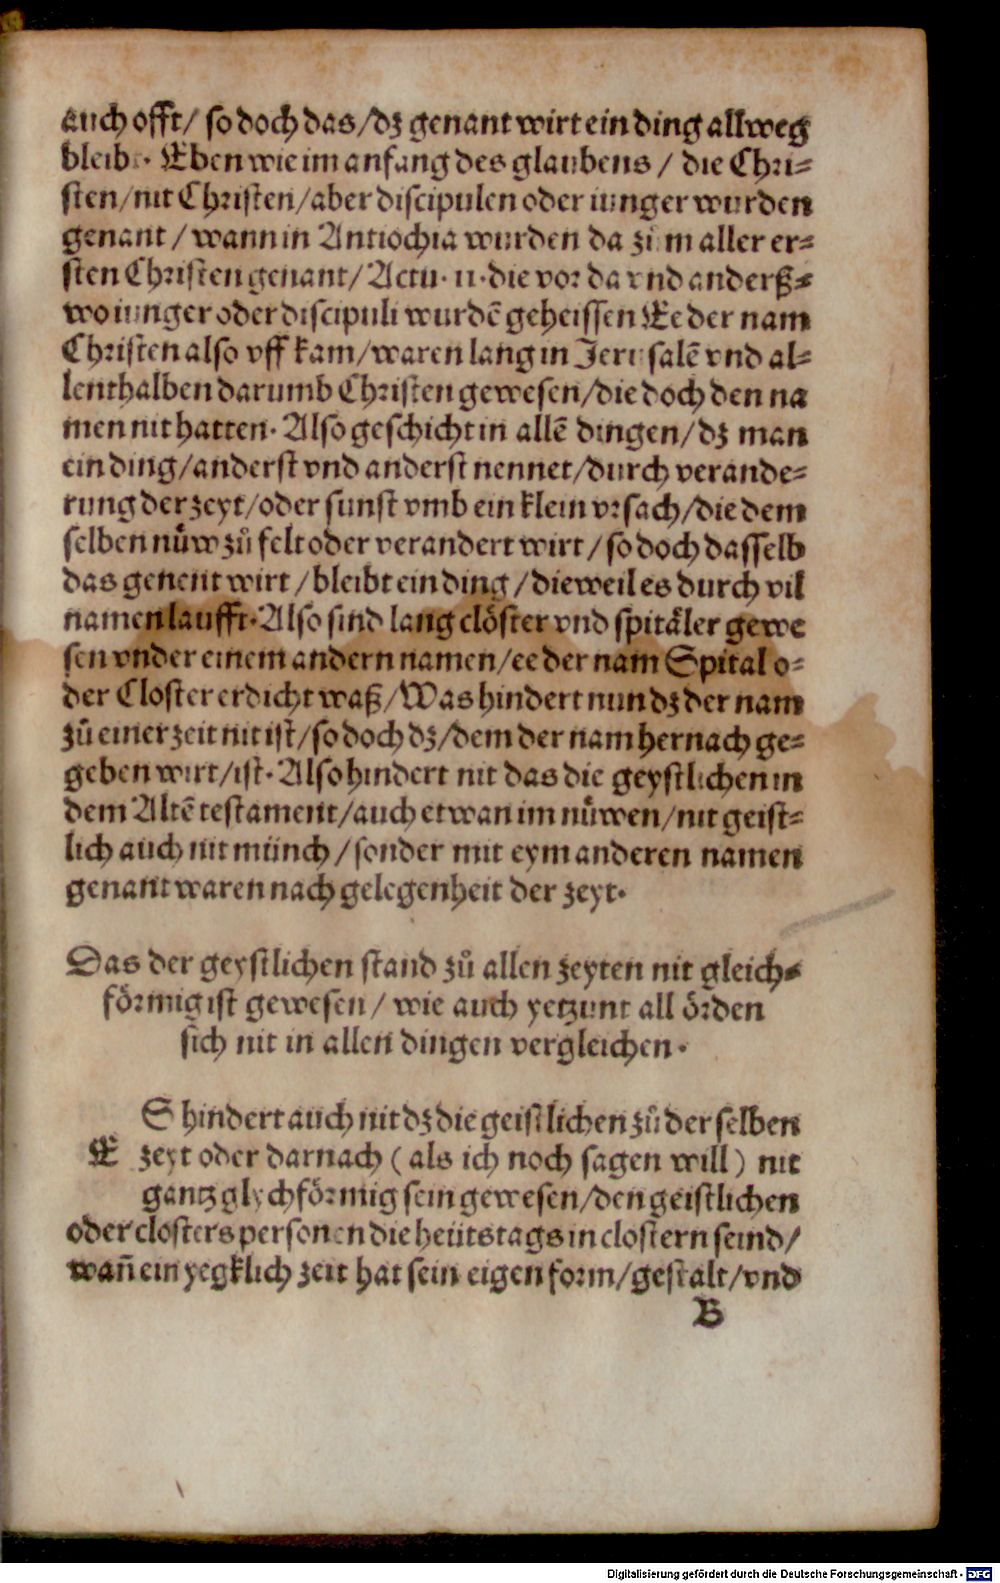 auch offt/ so doch das/dz genant wirt ein ding allweg
bleib. Eben wie im anfang des glaubens / die Chri⸗
sten/nit Christen/aber discipulen oder iunger wurden
genant / wann in Antiochia wurden da zum aller er⸗
sten Christen genant/ Actu. 11. die vor da vnd anderß⸗
wo iunger oder discipuli wurdē geheissen Ee der nam
Christen also vff kam/waren lang in Jerusalē vnd al⸗
lenthalben darumb Christen gewesen/die doch den na
men nit hatten. Also geschicht in allē dingen/dz man
ein ding/anderst vnd anderst nennet/durch verande⸗
rung der zeyt/oder sunst vmb ein klein vrsach/die dem
selben nüw zů felt oder verandert wirt / so doch dasselb
das genent wirt / bleibt ein ding / dieweil es durch vil
namen laufft. Also sind lang clöster vnd spitäler gewe
sen vnder einem andern namen/ee der nam Spital o⸗
der Closter erdicht waß/Was hindert nun dz der nam
zů einer zeit nit ist/so doch dz/dem der nam hernach ge⸗
geben wirt/ist. Also hindert nit das die geystlichen in
dem Altē testament/auch etwan im nüwen/nit geist⸗
lich auch nit münch / sonder mit eym anderen namen
genant waren nach gelegenheit der zeyt.
Das der geystlichen stand zů allen zeyten nit gleich⸗
förmig ist gewesen / wie auch yetzunt all örden
sich nit in allen dingen vergleichen.
ES hindert auch nit dz die geistlichen zů der selben
zeyt oder darnach ( als ich noch sagen will) nit
gantz glychförmig sein gewesen/den geistlichen
oder closters personen die heütstags in clostern seind/
wañ ein yegklich zeit hat sein eigen form/gestalt/vnd
B
Digitalisierung gefördert durch die Deutsche Forschungsgemeinschaft - DFG